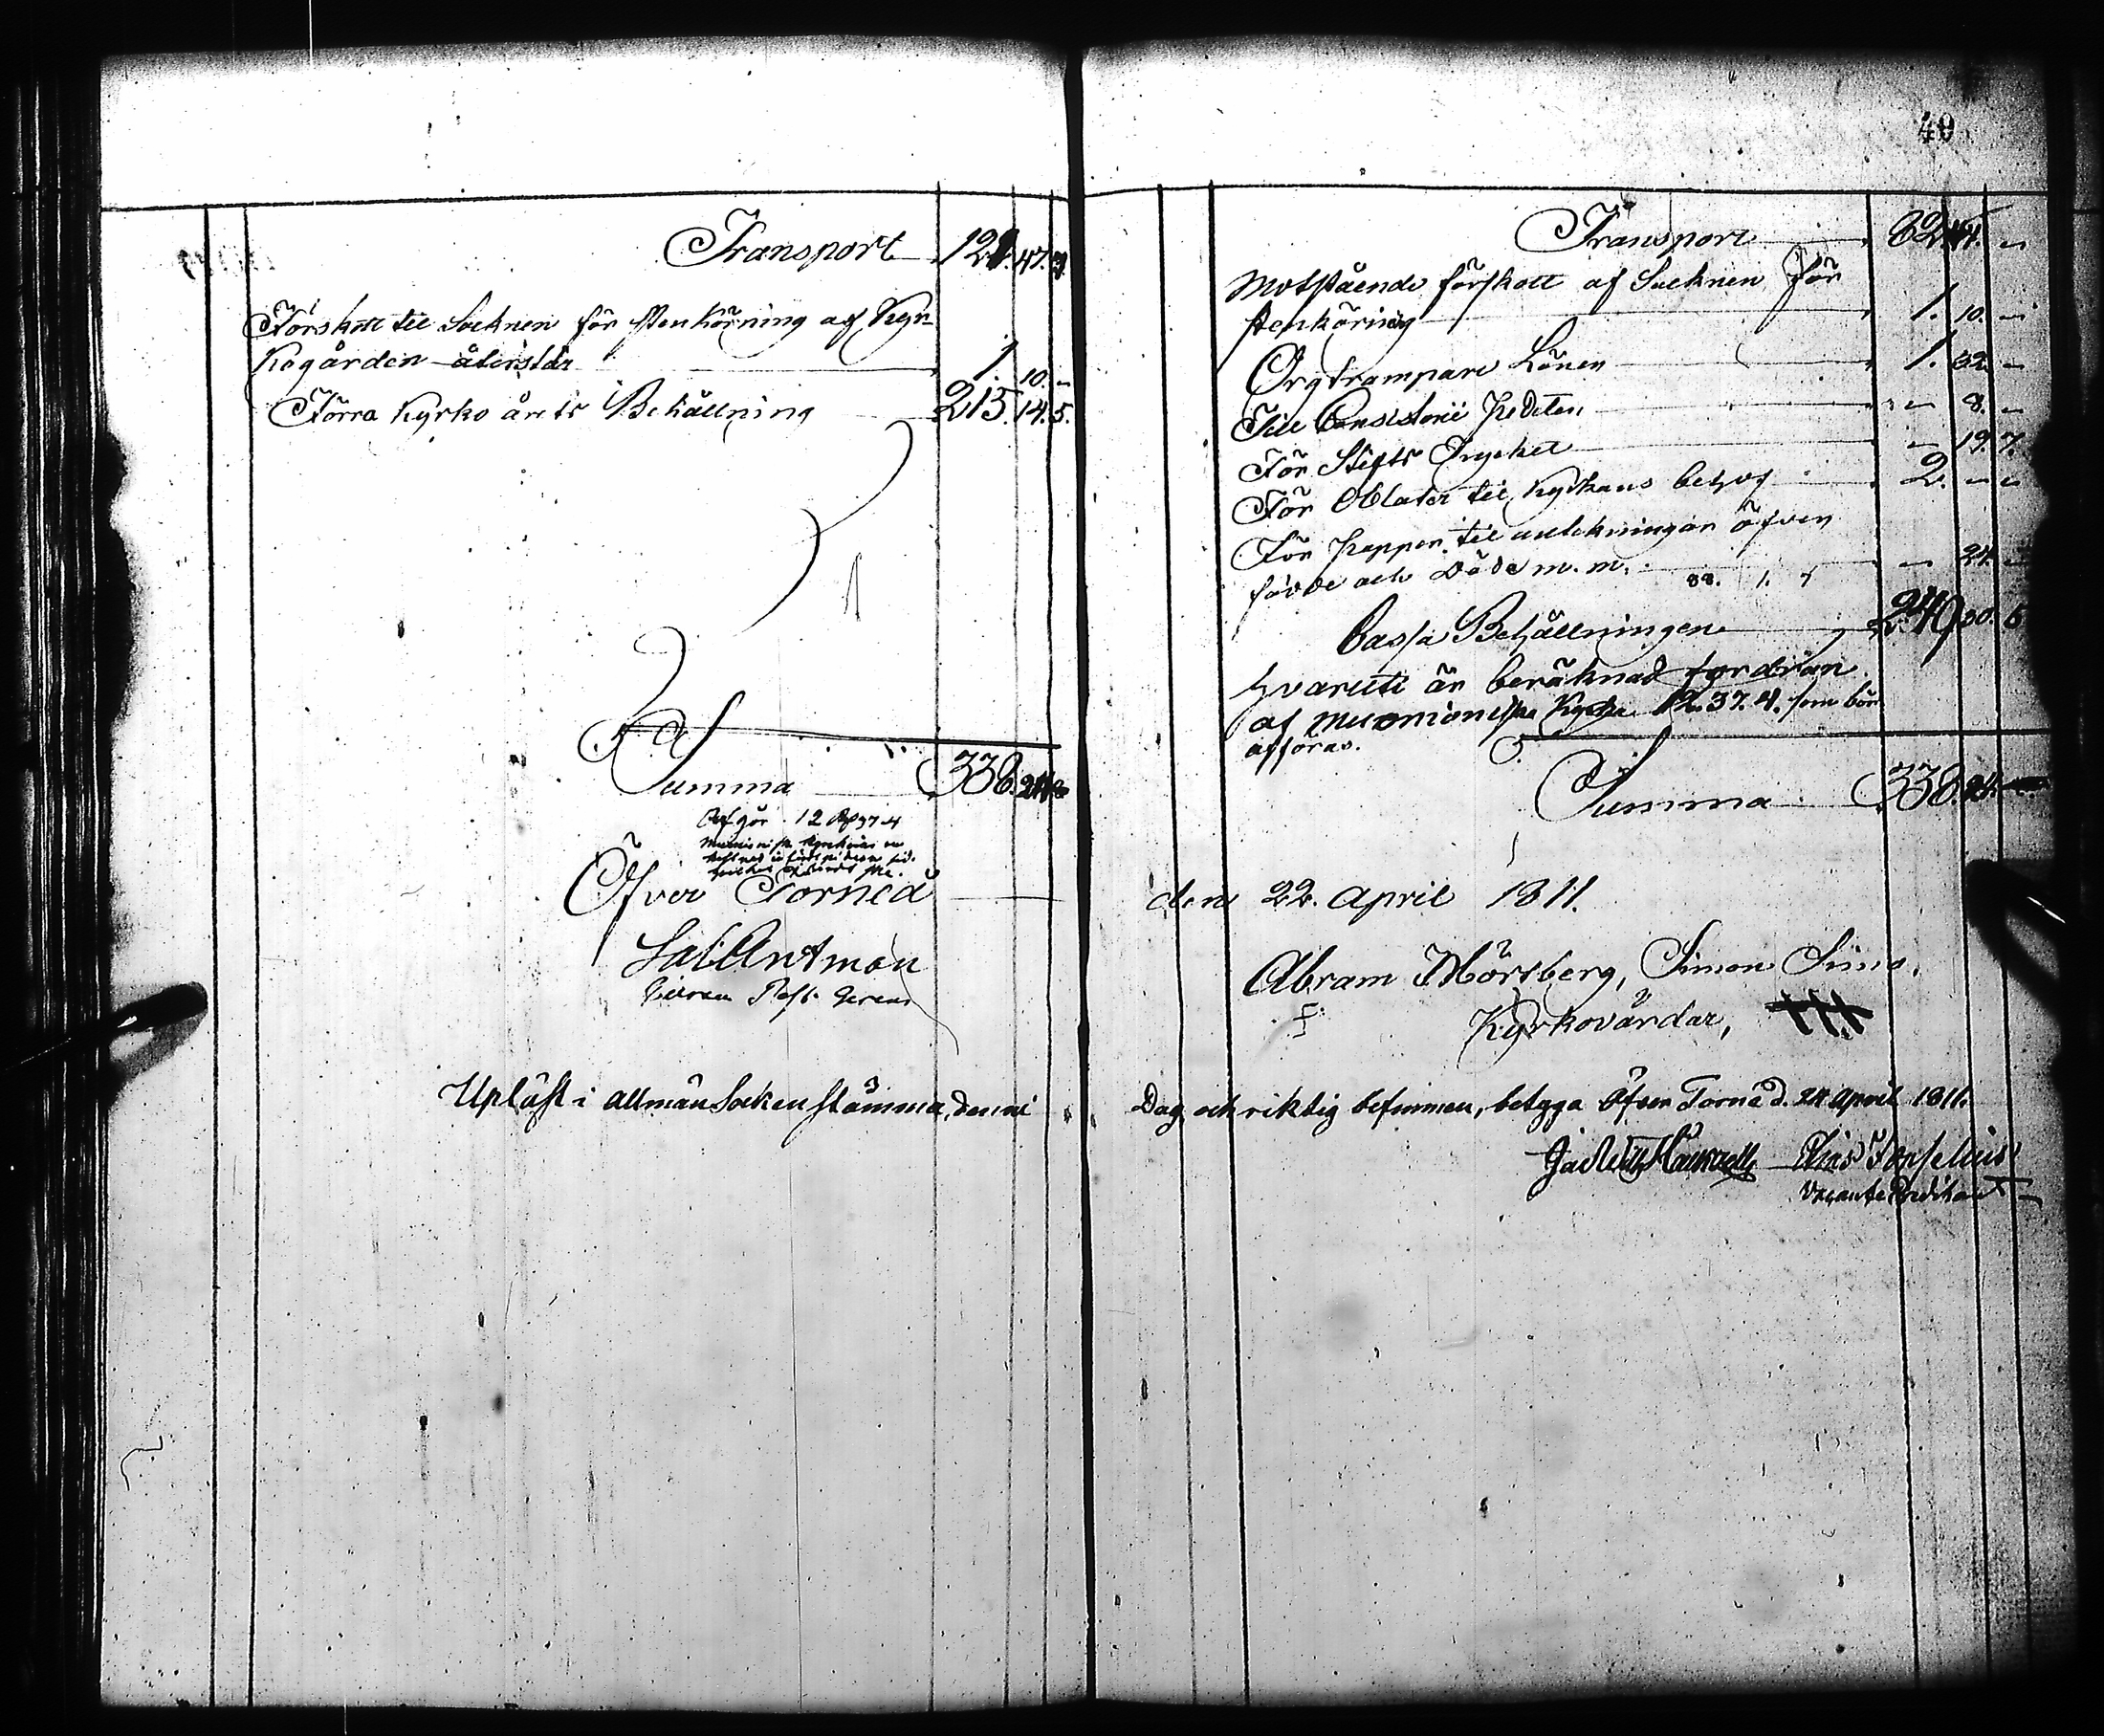 Transport 121. 47. 9.
Förskott til Socknen för stenkörning af Kyr-
kogården återstår 1. 10. -
Förra Kyrko årets Behållning 215. 14. 5.
Summa 338. 24.
Afgår 12 Rd 37 4
Öfver Torneå
Sal. Antman
49
Transport 82. 44. -
Motstående förskott af Socknen för
stenköring 1. 10. -
Orgtrampare Lönen 1. 32. -
Till Consistorii - 8. -
För Stifts Trycket - 19. 7.
För Oblater til Kyrkans behof 2. - -
För Papper til anteckningar öfver
födde och Döde m. m. 88. 1. 7 - 24. -
Cassa Behållningen 249 30. 5
hvaruti är beräknad fordran
af Muonioniska Kyrka 12. 37. 4. som bör
afföras.
Summa 338. 24.
den 22. April 1811.
Abram Mörtberg, Simon Simo,
Kyrkovärdar,
Upläst i allmän Sockenstämma, denne
Dag och riktig befunnen, betyga Öfver Torneå d. 24 April 1811.